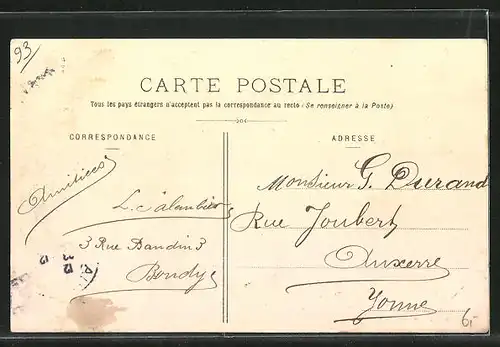 93
CARTE POSTALE
Tous les pays étrangers n'acceptent pas la correspondance au recto (Se renseigner à la Poste)
CORRESPONDANCE
Amitiées
3 Rue Baudin 3
Bondy
ADRESSE
Monsieur G. Durand
Rue Joubert
Auxerre
Yonne